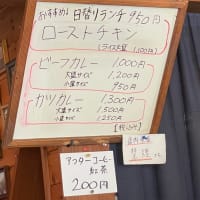 おすすめ! 日替りランチ 950円
ローストチキン
(ライス大盛 1,100円)
ビーフカレー 1,000円
大盛サイズ 1,200円
小盛サイズ 950円
カツカレー 1,300円
大盛サイズ 1,500円
小盛サイズ 1,250円
[税込み]
アフターコーヒー
紅茶
200円